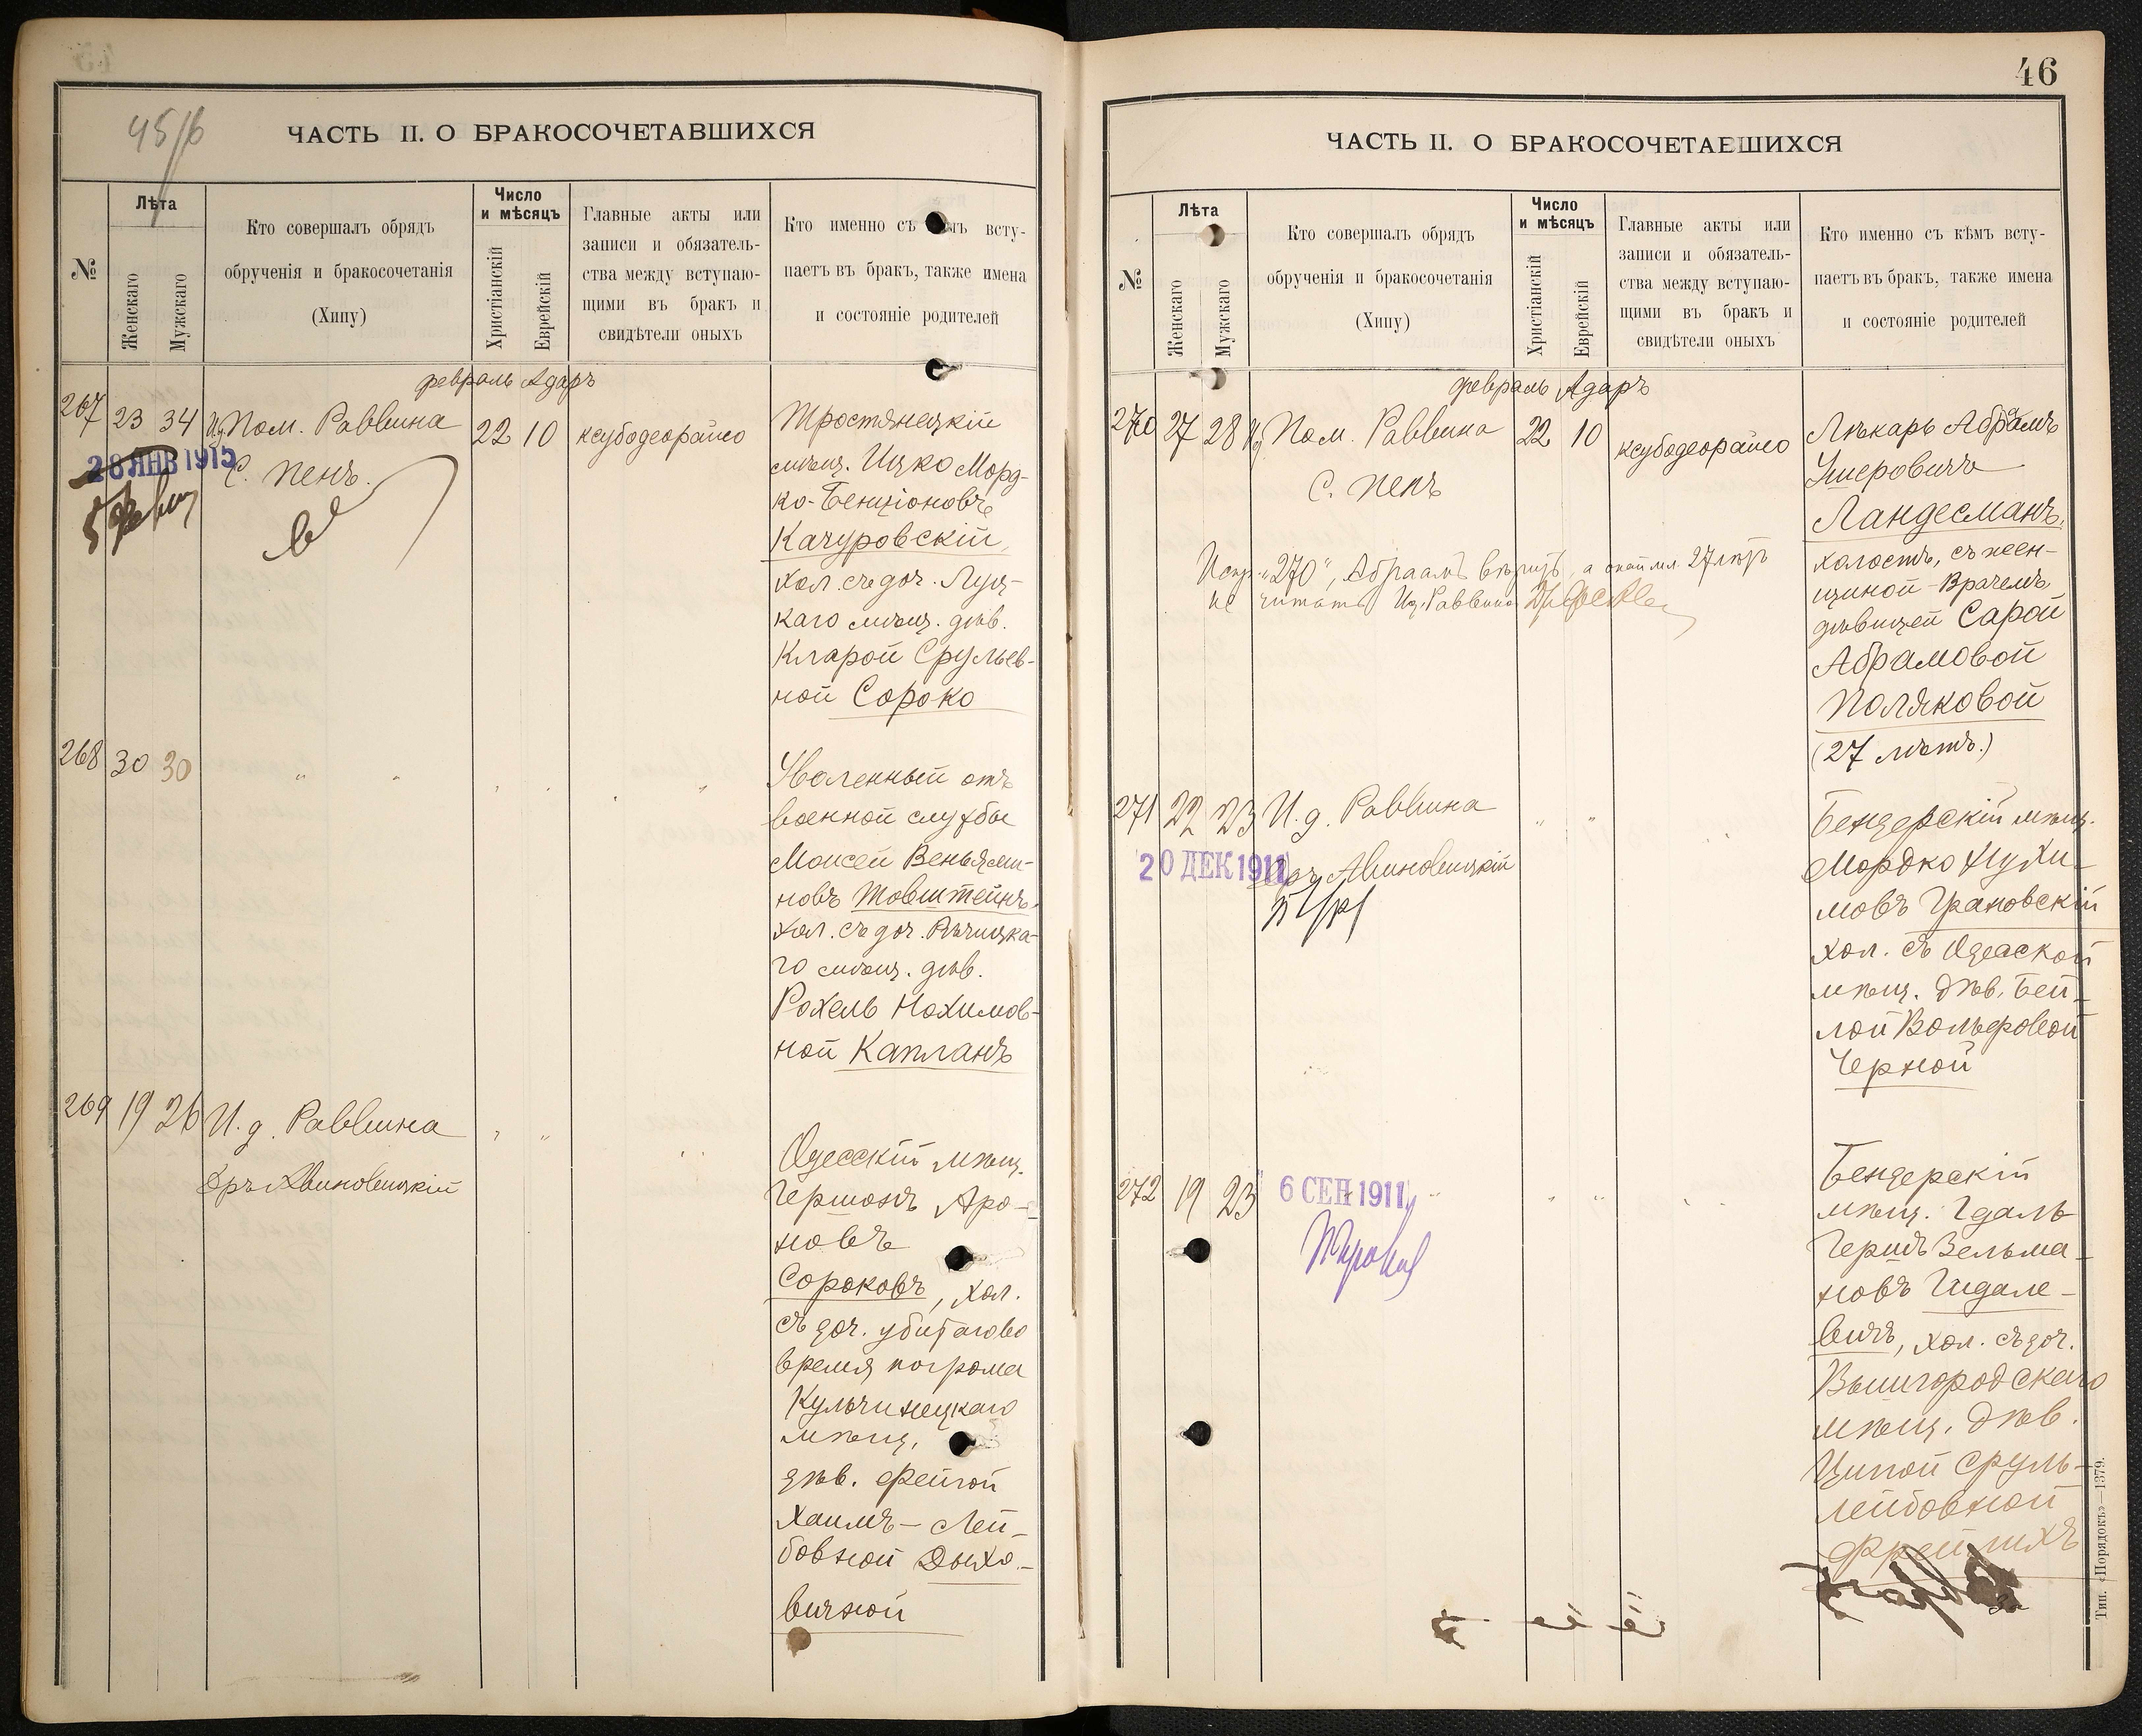 45/6
ЧАСТЬ II. О БРАКОСОЧЕТАВШИХСЯ
№
Лѣта
Женскаго
Мужскаго
Кто совершалъ обрядъ
обрученія и бракосочетанія
(Хипу)
Число
и мѣсяцъ
Христіанскій
Еврейскій
Главные акты или
записи и обязатель-
ства между вступаю-
щими въ бракъ и
свидѣтели оныхъ
Кто именно съ кѣмъ всту-
паетъ въ бракъ, также имена
и состояніе родителей
февраль Адаръ
267 23 34 Пом. Раввина 22 10 ксубодеорайсо
28 ЯНВ 1915
С. Пенъ.
Тростянецкій
мѣщ. Ицко Морд-
ко-Бенціоновъ
Качуровскій,
хол. съ доч. Луц-
каго мѣщ. дѣв.
Кларой Срулев-
ной Сороко
268 30 30 " "
Уволенный отъ
военной службы
Моисей Веньями-
новъ Товштейнъ,
хол. съ доч. Рѣчицка-
го мѣщ. дѣв.
Рохель Нохимов-
ной Капланъ
269 19 26 И. д. Раввина
Д-ръ Авиновицкій
Одесскій мѣщ.
Гершонъ Аро-
новъ
Сороковъ, хол.
съ доч. убитаго во
время погрома
Кульчинецкаго
мѣщ.
дѣв. Фейгой
Хаимъ-Лей-
бовной Дыхо-
вичной
46
ЧАСТЬ II. О БРАКОСОЧЕТАВШИХСЯ
№
Лѣта
Женскаго
Мужскаго
Кто совершалъ обрядъ
обрученія и бракосочетанія
(Хипу)
Число
и мѣсяцъ
Христіанскій
Еврейскій
Главные акты или
записи и обязатель-
ства между вступаю-
щими въ бракъ и
свидѣтели оныхъ
Кто именно съ кѣмъ всту-
паетъ въ бракъ, также имена
и состояніе родителей
февраль Адаръ
270 27 28 Пом. Раввина 22 10 ксубодеорайсо
С. Пенъ
Испр. "270", Абраамъ вѣрить, а 27 лѣтъ
не читать И. д. Раввина
Лѣкарь Абрамъ
Ушеровичъ
Ландесманъ,
холостъ, съ жен-
щиной-врачемъ
дѣвицей Сарой
Абрамовой
Поляковой
(27 лѣтъ.)
271 22 23 И. д. Раввина
20 ДЕК 1911
Д-ръ Авиновицкій
Бендерскій мѣщ.
Мордко Нухи-
мовъ Грановскій
хол. съ Одесской
мѣщ. дѣв. Бей-
лой Вольфовой
Черной
272 19 23 " "
6 СЕН 1911
Бендерскій
мѣщ. Гдаль
Гершъ Зельма-
новъ Гидале-
вичъ, хол. съ доч.
Вышгородскаго
мѣщ. дѣв.
Ципой Сруль-
Лейбовной
Фрейлихъ
Тип. «Порядокъ»—1379.